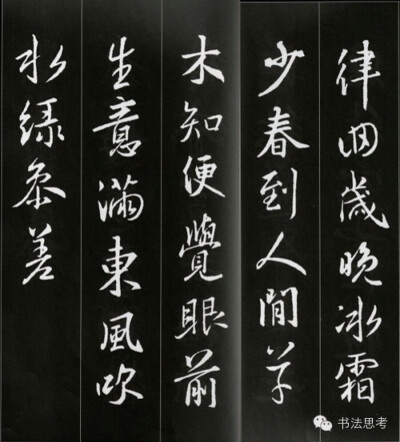 律回歲晚冰霜
少春到人間草
木知便覺眼前
生意滿東風吹
水綠參差
书法思考